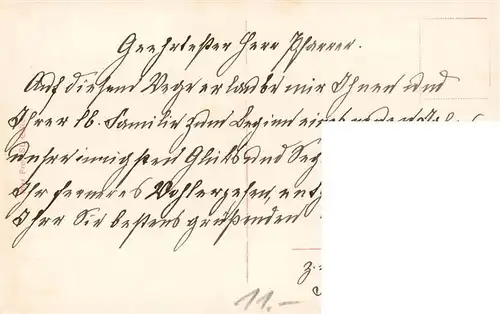 Geehrtester Herr Pfarrer.
Auf diesem Wege erlaube mir Ihnen und
Ihrer lb. Familie zum Beginn eines
innigsten Glücks und Seg
Ihr ferneres Wohlergehen, entg
Ihre Sie bestens grüßenden
11.-